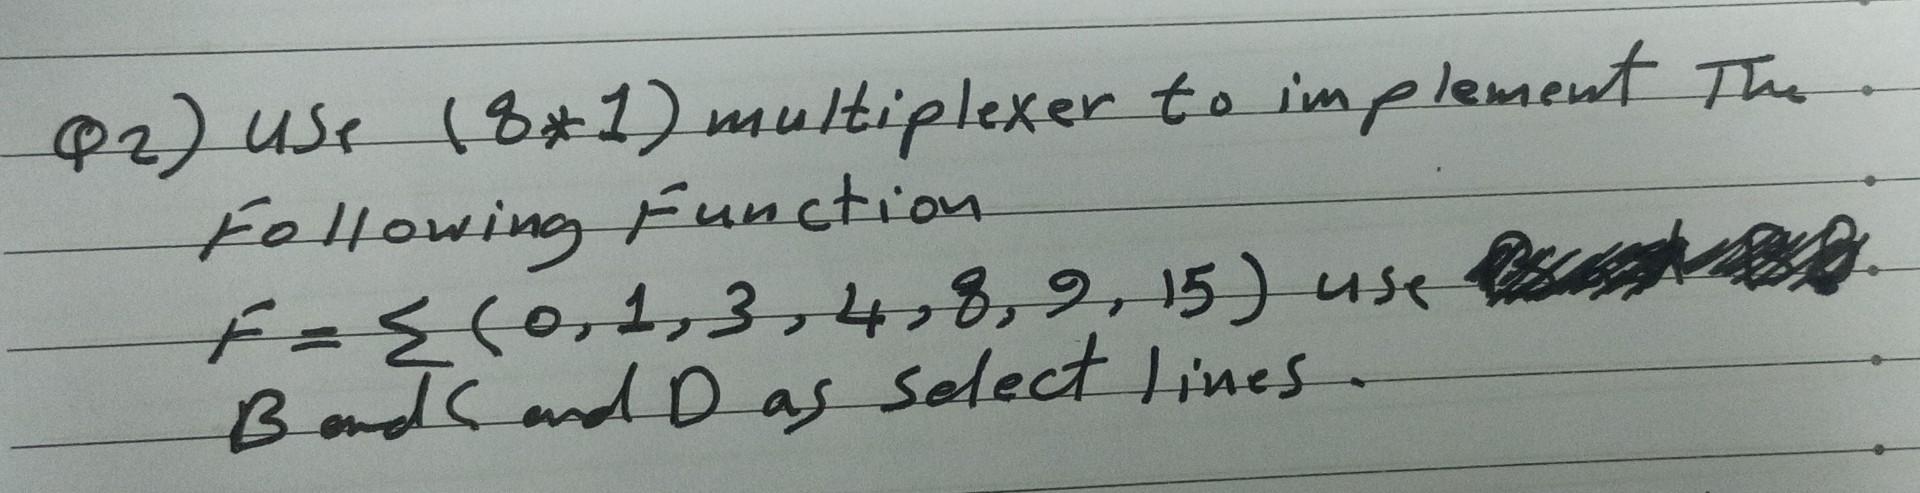 Q2) Use (8*1) multiplexer to implement The
Following Function
F = Σ (0, 1, 3, 4, 8, 9, 15) use
B and C and D as select lines.